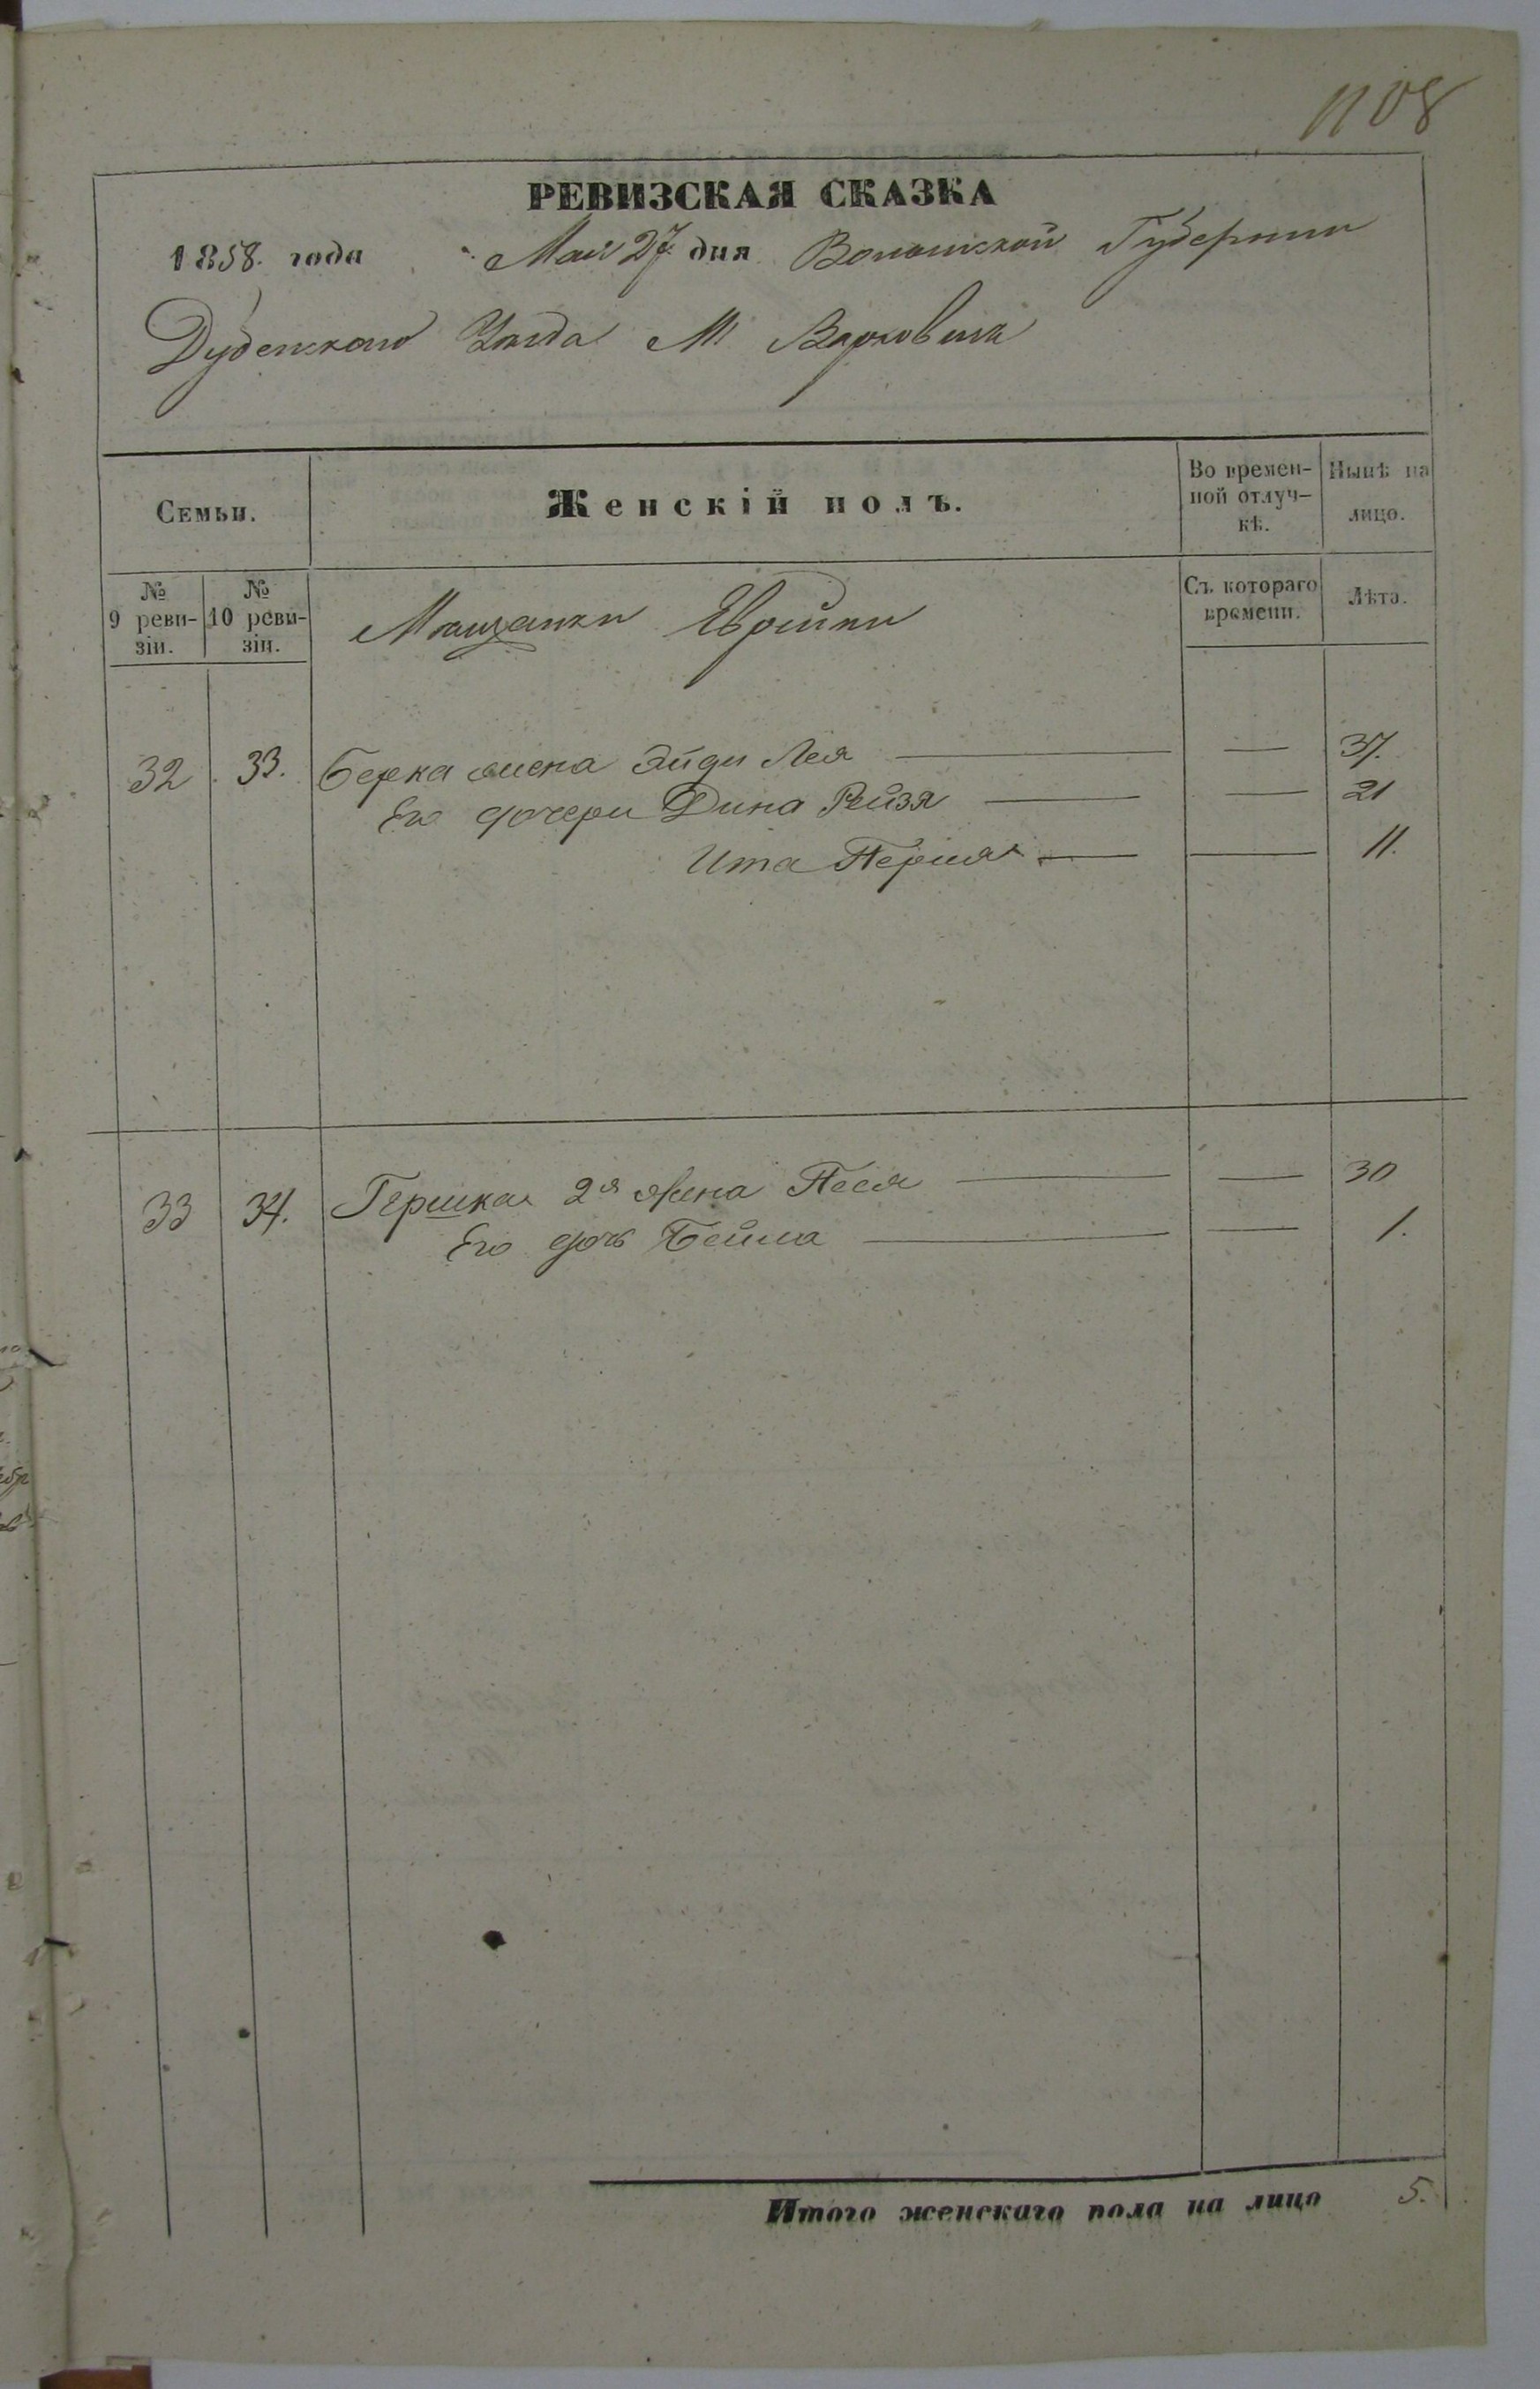 1108
РЕВИЗСКАЯ СКАЗКА
1858. года Мая 27 дня Волынской Губернии
Дубенскаго Уезда М. Варковичь
Семьи.
Женскій полъ.
Во времен-
ной отлуч-
кѣ.
Нынѣ на
лицо.
№
9 реви-
зіи.
№
10 реви-
зіи.
Мещанки Еврейки
Съ котораго
времени.
Лѣта.
32 33. Берка жена Эйдя Лея — — 37.
Его дочери Дина Рейзя — — 21
Ита Перля — — 11.
33 34. Гершка 2я жена Песя — — 30
Его дочь Бейла — — 1.
Итого женскаго пола на лицо 5.